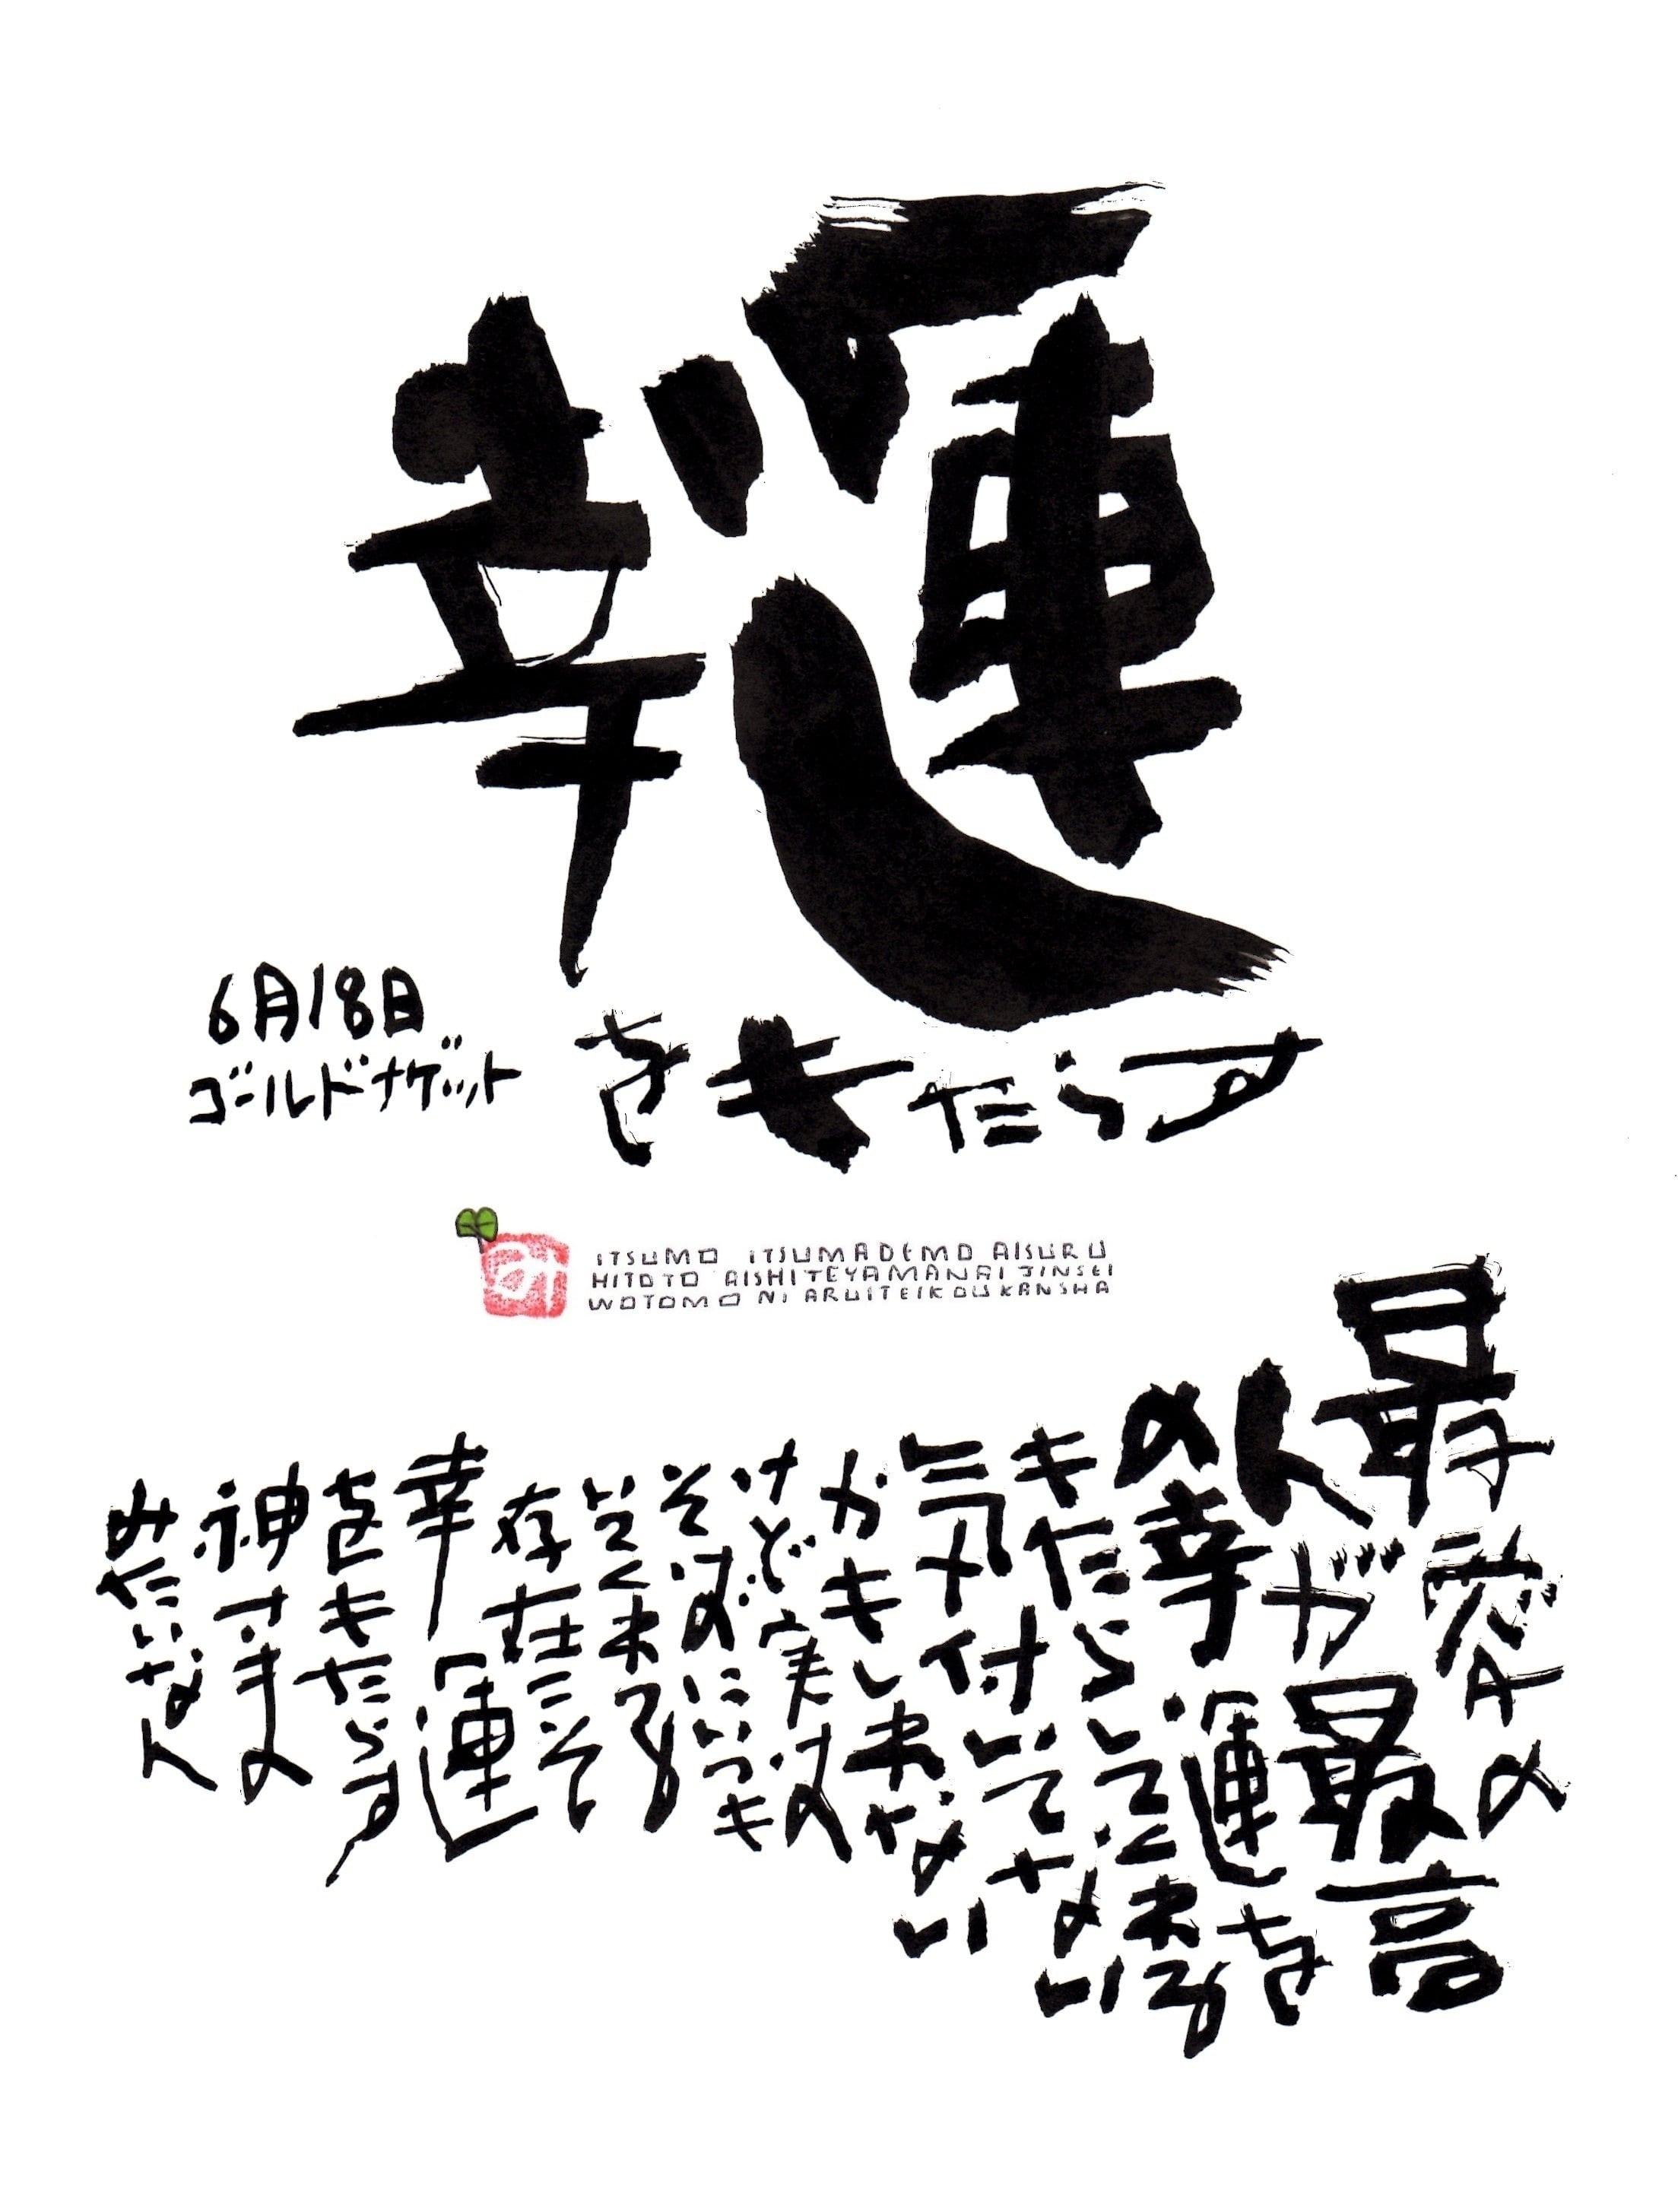 幸運
をもたらす
6月18日
ゴールドナゲット
み
ITSUMO ITSUMADEMO AISURU
HITOTO AISHITEYAMANAI JINSEI
WOTOMO NI ARUITEIKOU KANSHA
最愛の
人が最高
の幸運を
もたらしてくれる
に気付いてない
かもしれない
けど実は
そばにいつも
いてくれる
存在こそ
幸運
をもたらす
神さま
みたいな人